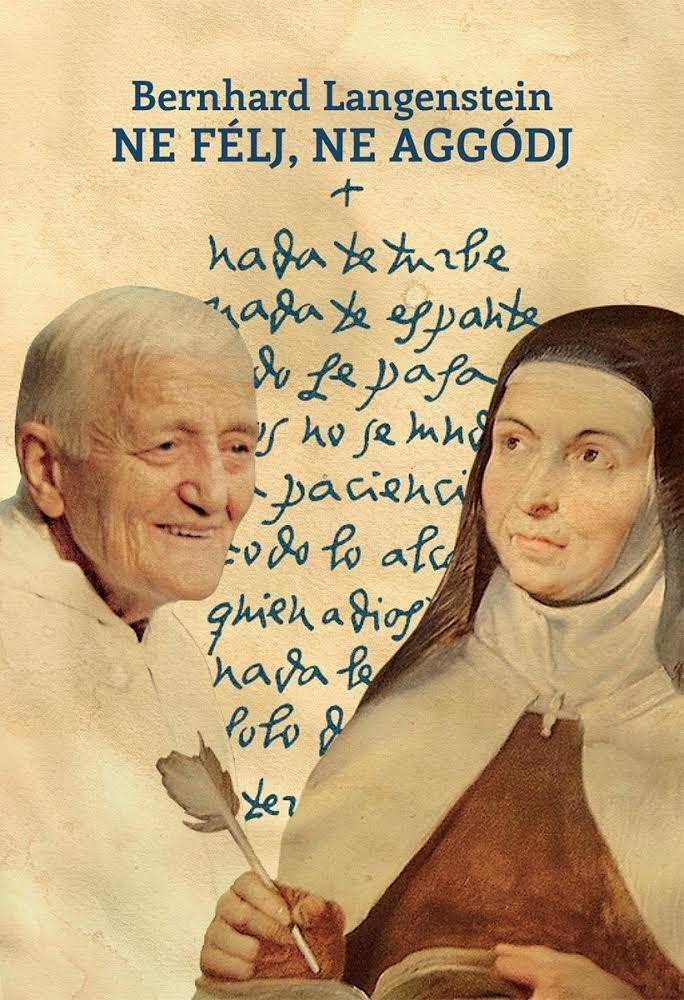 Bernhard Langenstein
NE FÉLJ, NE AGGÓDJ
+
nada te turbe
nada te espante
do se pasa
s no se mud
pacienci
todo lo alca
quien a dios
nada le
solo d
ter